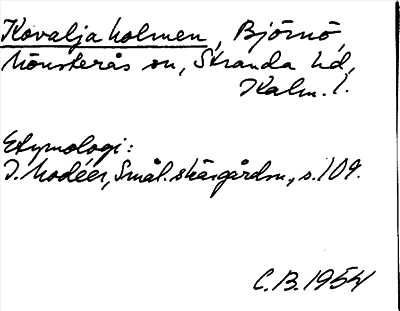 Kovalja holmen, Björnö,
Mönsterås sn, Stranda hd,
Kalm. l.
Etymologi:
I. Modéer, Smål. skärgårdsn., s. 109.
C.B. 1954